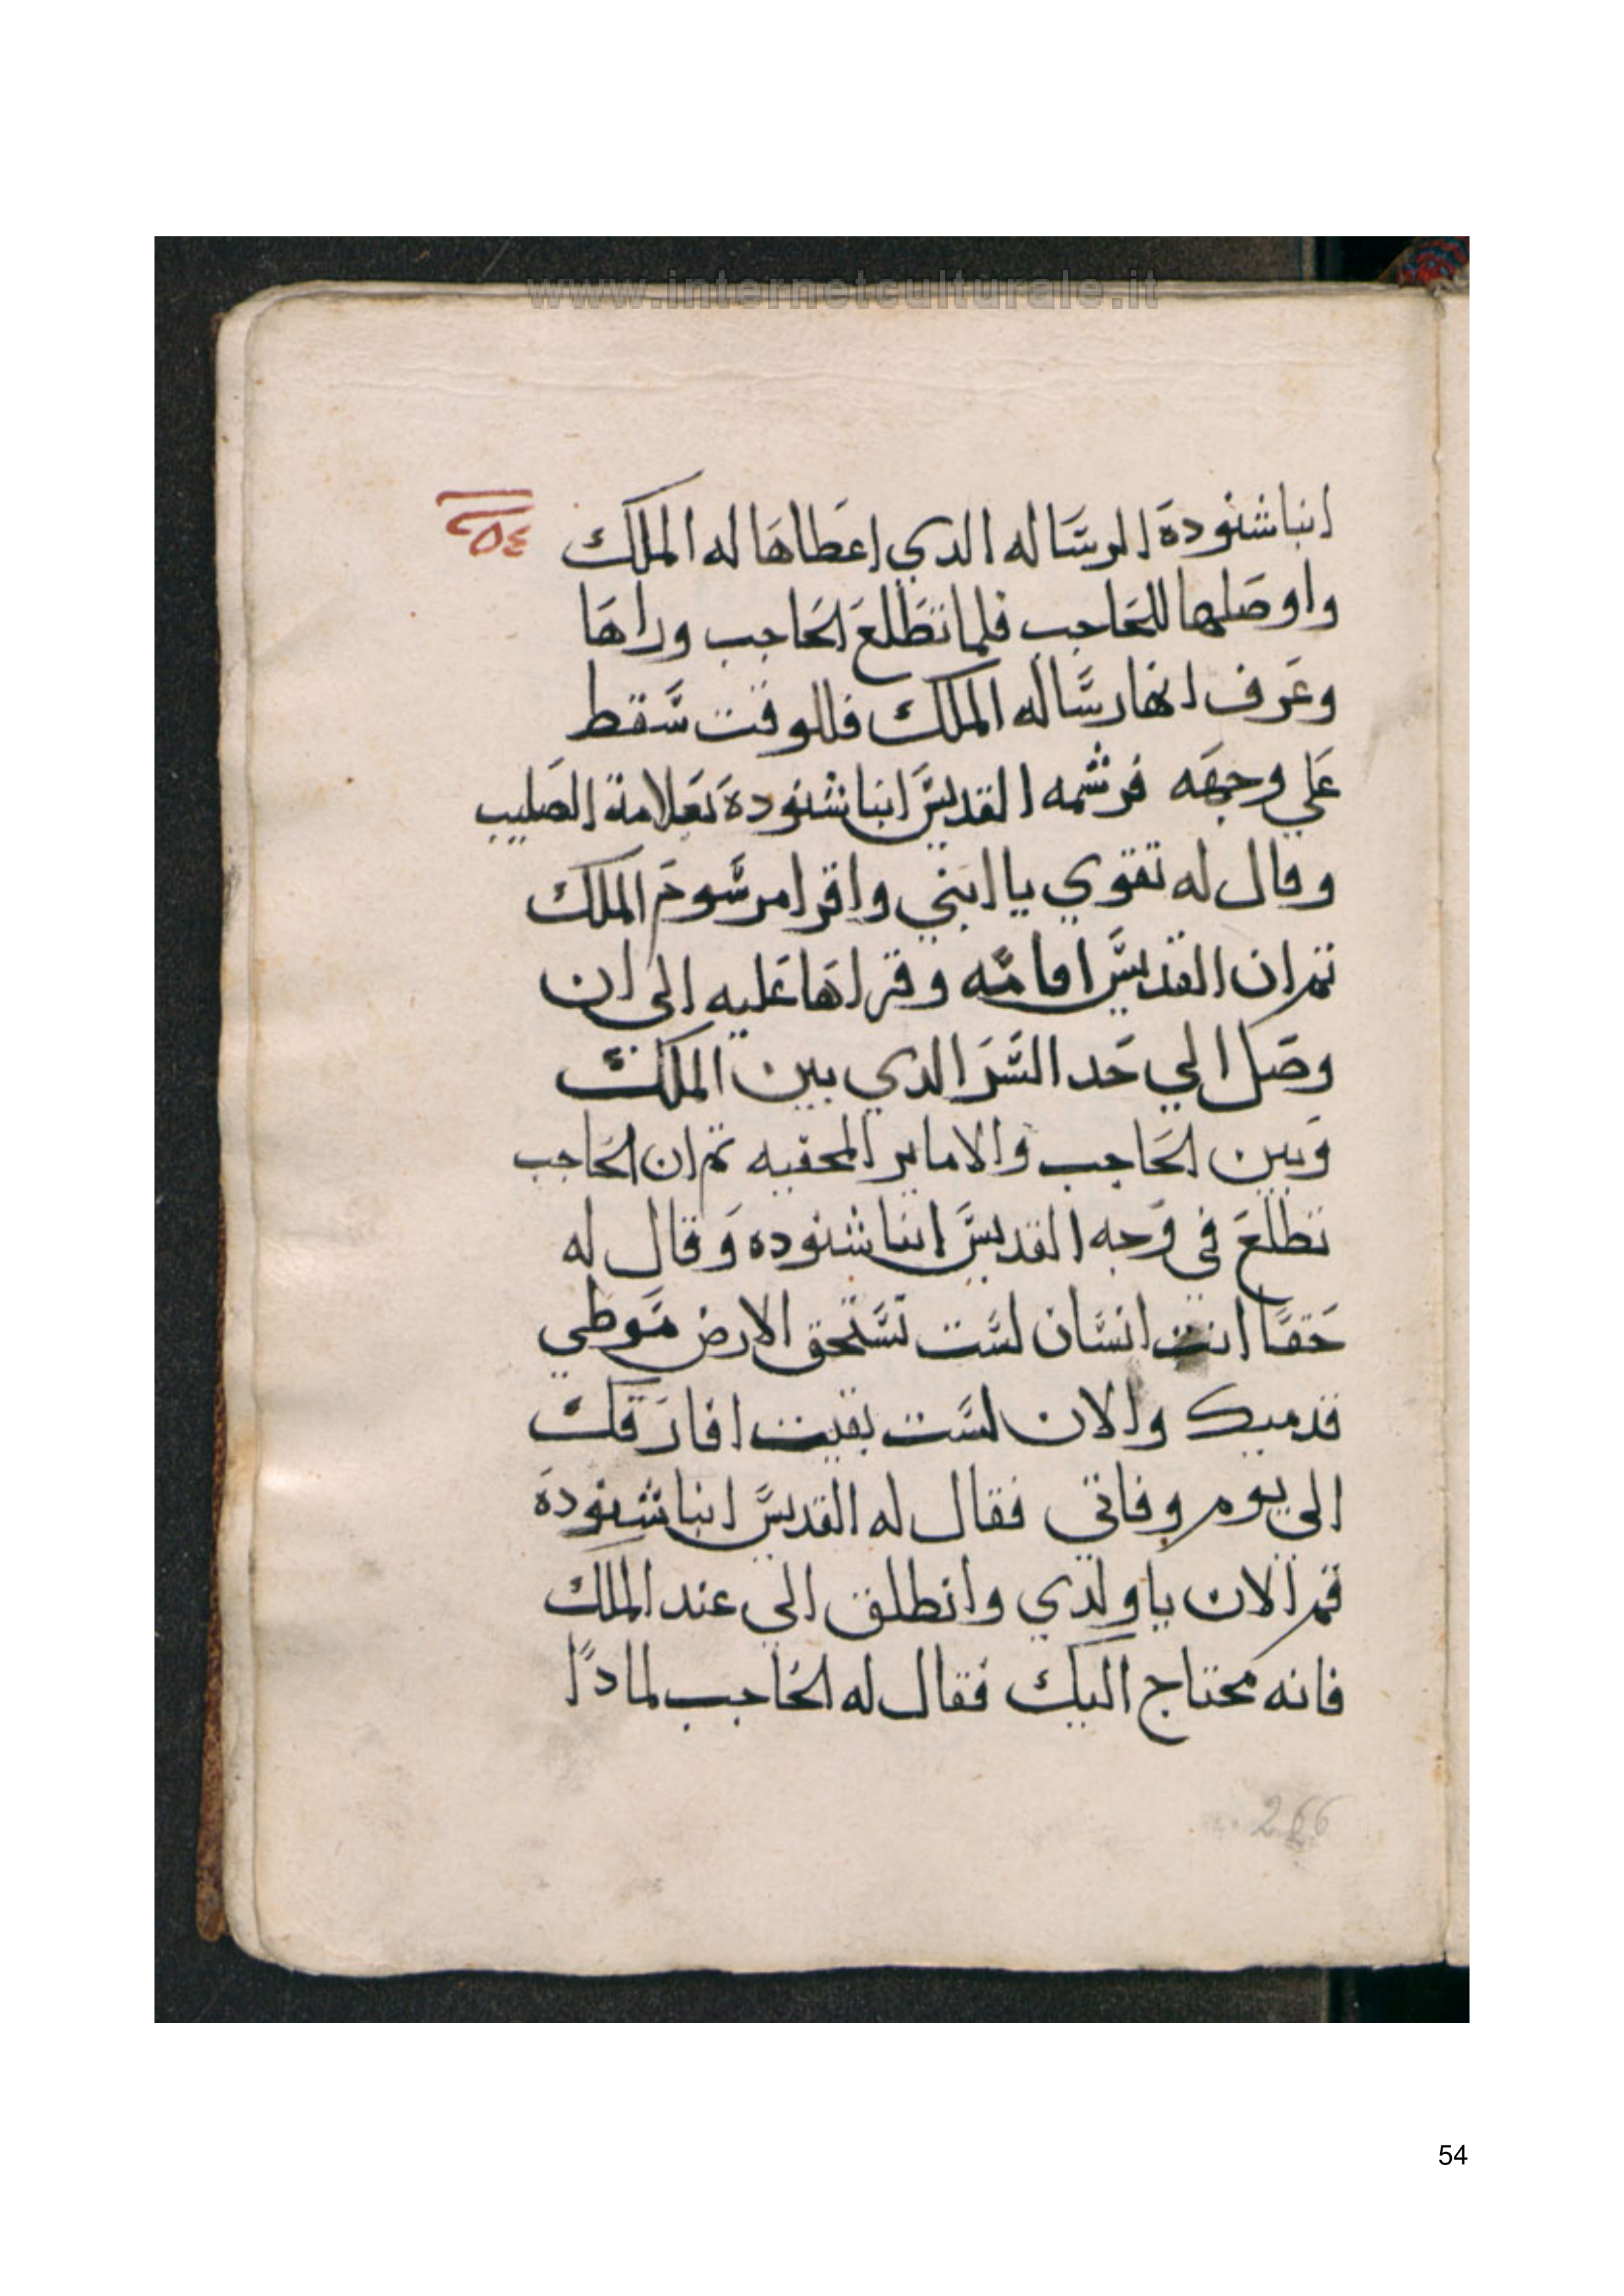 www.internetculturale.it
٥٤
انبا شنوده الرساله الدي اعطاها له الملك
واوصلها للحاجب فلما تطلع الحاجب وراها
وعرف انها رساله الملك فللوقت سقط
علي وجهه فرشمه القديس انبا شنودة بعلامة الصليب
وقال له تقوي يا ابني واقرا مرسوم الملك
تم ان القديس اقامه وقراها عليه الي ان
وصل الي حد السر الدي بين الملك
وبين الحاجب والاماير المخفيه تم ان الحاجب
تطلع في وجه القديس انبا شنوده وقال له
حقا انت انسان لست تستحق الارض موطي
قدميك والان لست بقيت افارقك
الي يوم وفاتي فقال له القديس انبا شنودة
قم الان يا ولدي وانطلق الي عند الملك
فانه محتاج اليك فقال له الحاجب لمادا
266
54